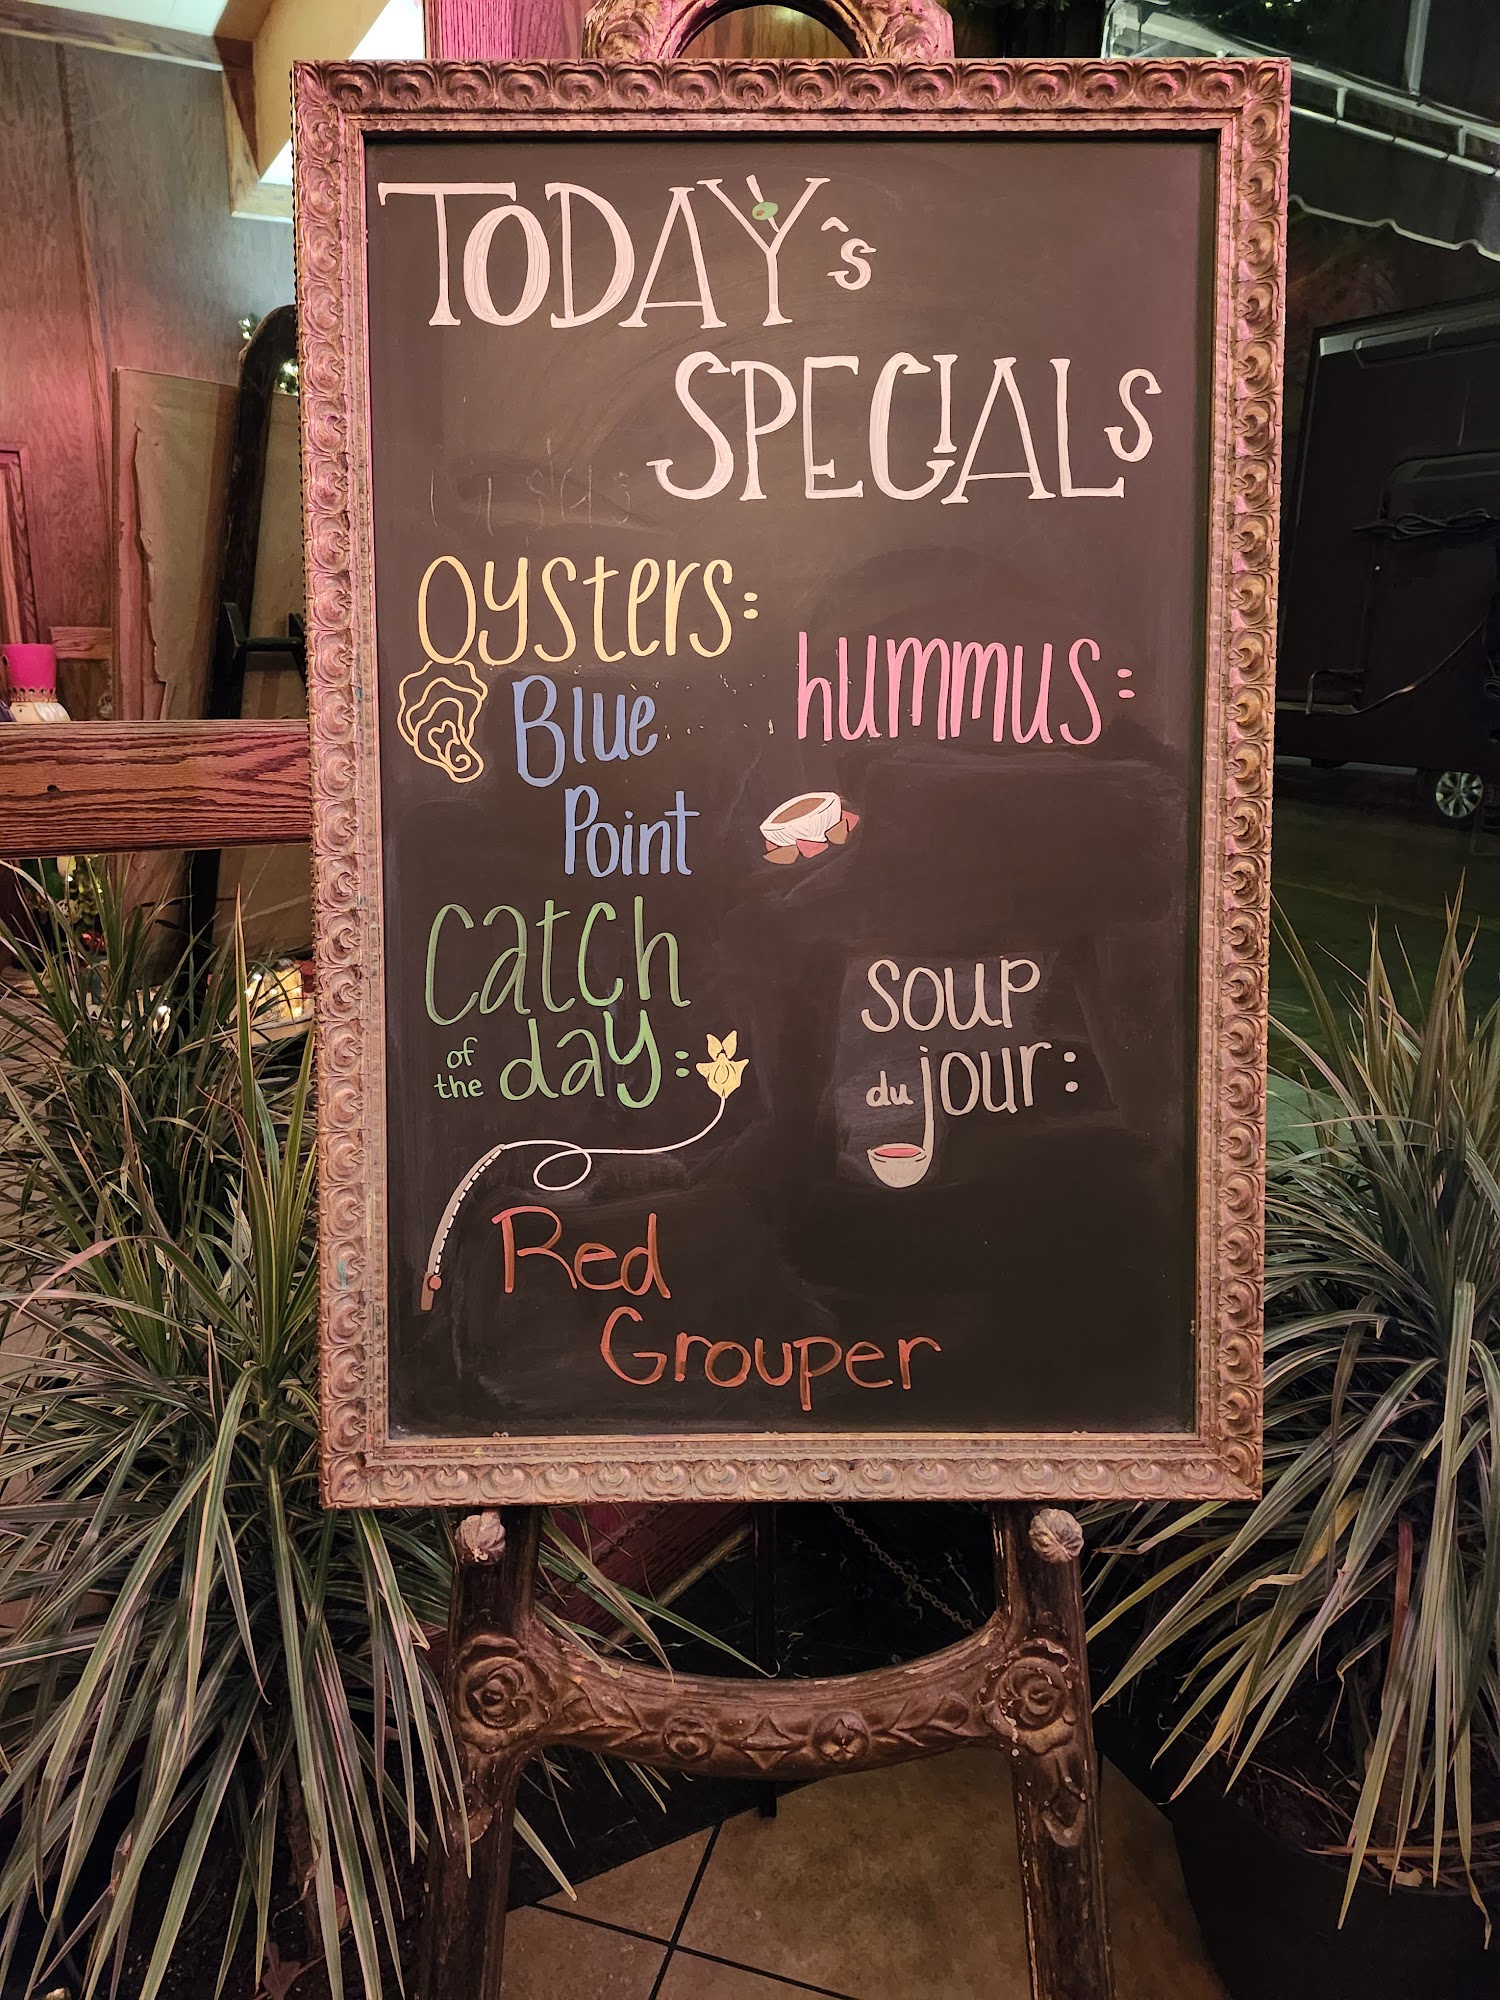 TODAY's
SPECIALS
Oysters:
Blue
Point
hummus:
Catch
of the day:
Red
Grouper
soup
du jour: